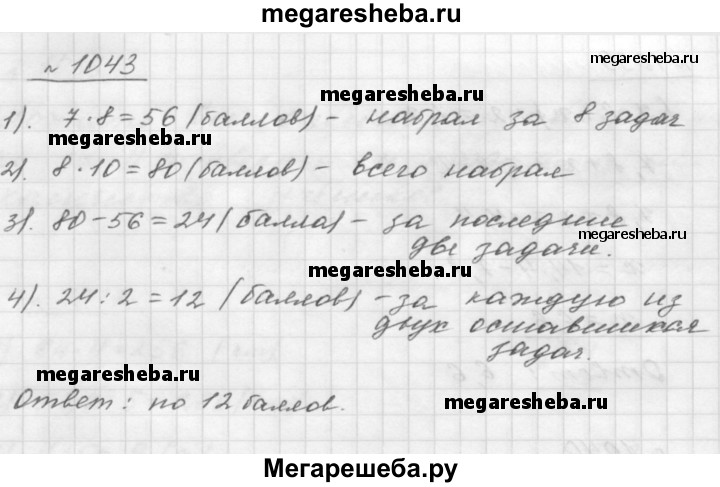 megaresheba.ru
№ 1043
megaresheba.ru
megaresheba.ru
1). 7·8=56 (баллов) - набрал за 8 задач
megaresheba.ru
2). 8·10=80 (баллов) - всего набрал
3). 80-56=24 (балла) - за последние
megaresheba.ru
две задачи.
megaresheba.ru
4). 24:2=12 (баллов) - за каждую из
двух оставшихся
задач.
megaresheba.ru
Ответ: по 12 баллов.
megaresheba.ru
Мегарешеба.ру